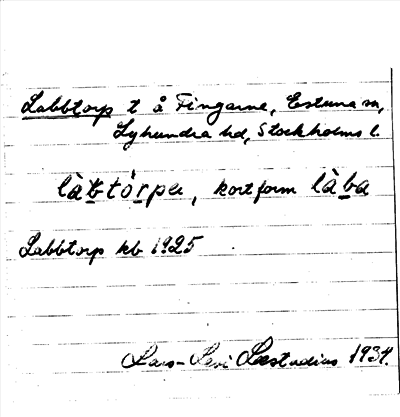 Labbtorp t å Fingarne, Estuna sn,
Lyhundra hd, Stockholms l.
làbtórpə, kortform làba
Labbtorp kb 1925
Lars-Levi Læstadius 1934.